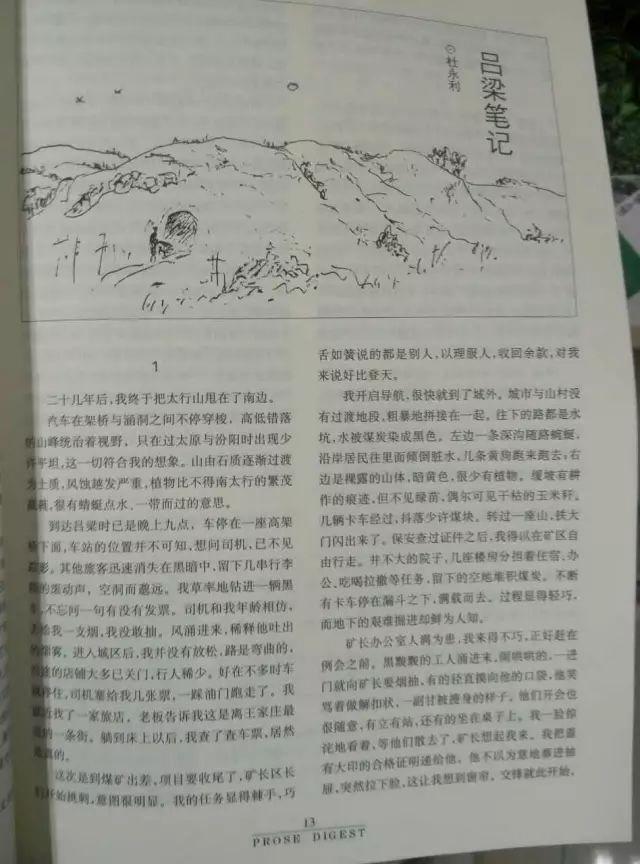 吕梁笔记
⊙杜永利
1
二十几年后,我终于把太行山甩在了南边。
汽车在架桥与涵洞之间不停穿梭,高低错落
的山峰统治着视野,只在过太原与汾阳时出现少
许平坦,这一切符合我的想象。山由石质逐渐过渡
为土质,风蚀越发严重,植物比不得南太行的繁茂
葳蕤,很有蜻蜓点水、一带而过的意思。
到达吕梁时已是晚上九点,车停在一座高架
桥下面,车站的位置并不可知,想问司机,已不见
踪影。其他旅客迅速消失在黑暗中,留下几串行李
箱的滚动声,空洞而邈远。我草率地钻进一辆黑
车,不忘问一句有没有发票。司机和我年龄相仿,
丢给我一支烟,我没敢抽。风涌进来,稀释他吐出
的烟雾。进入城区后,我并没有放松,路是弯曲的,
的店铺大多已关门,行人稀少。好在不多时车
停住,司机塞给我几张票,一踩油门跑走了。我
近找了一家旅店。老板告诉我这是离王家庄最
的一条街。躺到床上以后,我查了查车票,居然
是真的。
这次是到煤矿出差,项目要收尾了,矿长区长
们开始挑刺,意图很明显。我的任务显得棘手,巧
舌如簧说的都是别人,以理服人,收回余款,对我
来说好比登天。
我开启导航,很快就到了城外。城市与山村没
有过渡地段,粗暴地拼接在一起。往下的路都是水
坑,水被煤炭染成黑色。左边一条深沟随路蜿蜒,
沿岸居民往里面倾倒脏水,几条黄狗跑来跑去;右
边是裸露的山体,暗黄色,很少有植物。缓坡有耕
作的痕迹,但不见绿苗,偶尔可见干枯的玉米秆。
几辆卡车经过,抖落少许煤块。转过一座山,铁大
门闪出来了。保安查过证件之后,我得以在矿区自
由行走。并不大的院子,几座楼房分担着住宿、办
公、吃喝拉撒等任务,留下的空地堆积煤炭。不断
有卡车停在漏斗之下,满载而去。过程显得轻巧,
而地下的艰难掘进却鲜为人知。
矿长办公室人满为患,我来得不巧,正好赶在
例会之前。黑黢黢的工人涌进来,闹哄哄的,一进
门就向矿长要烟抽,有的径直摸向他的口袋,他笑
骂着做解扣状,一副甘被搜身的样子。他们开会也
很随意,有立有站,还有的坐在桌子上。我一脸惊
诧地看着,等他们散去了,矿长想起我来。我把盖
有大印的合格证明递给他,他不以为意地搴进抽
屉,突然拉下脸,这让我想到窗帘。交锋就此开始,
13
PROSE DIGEST